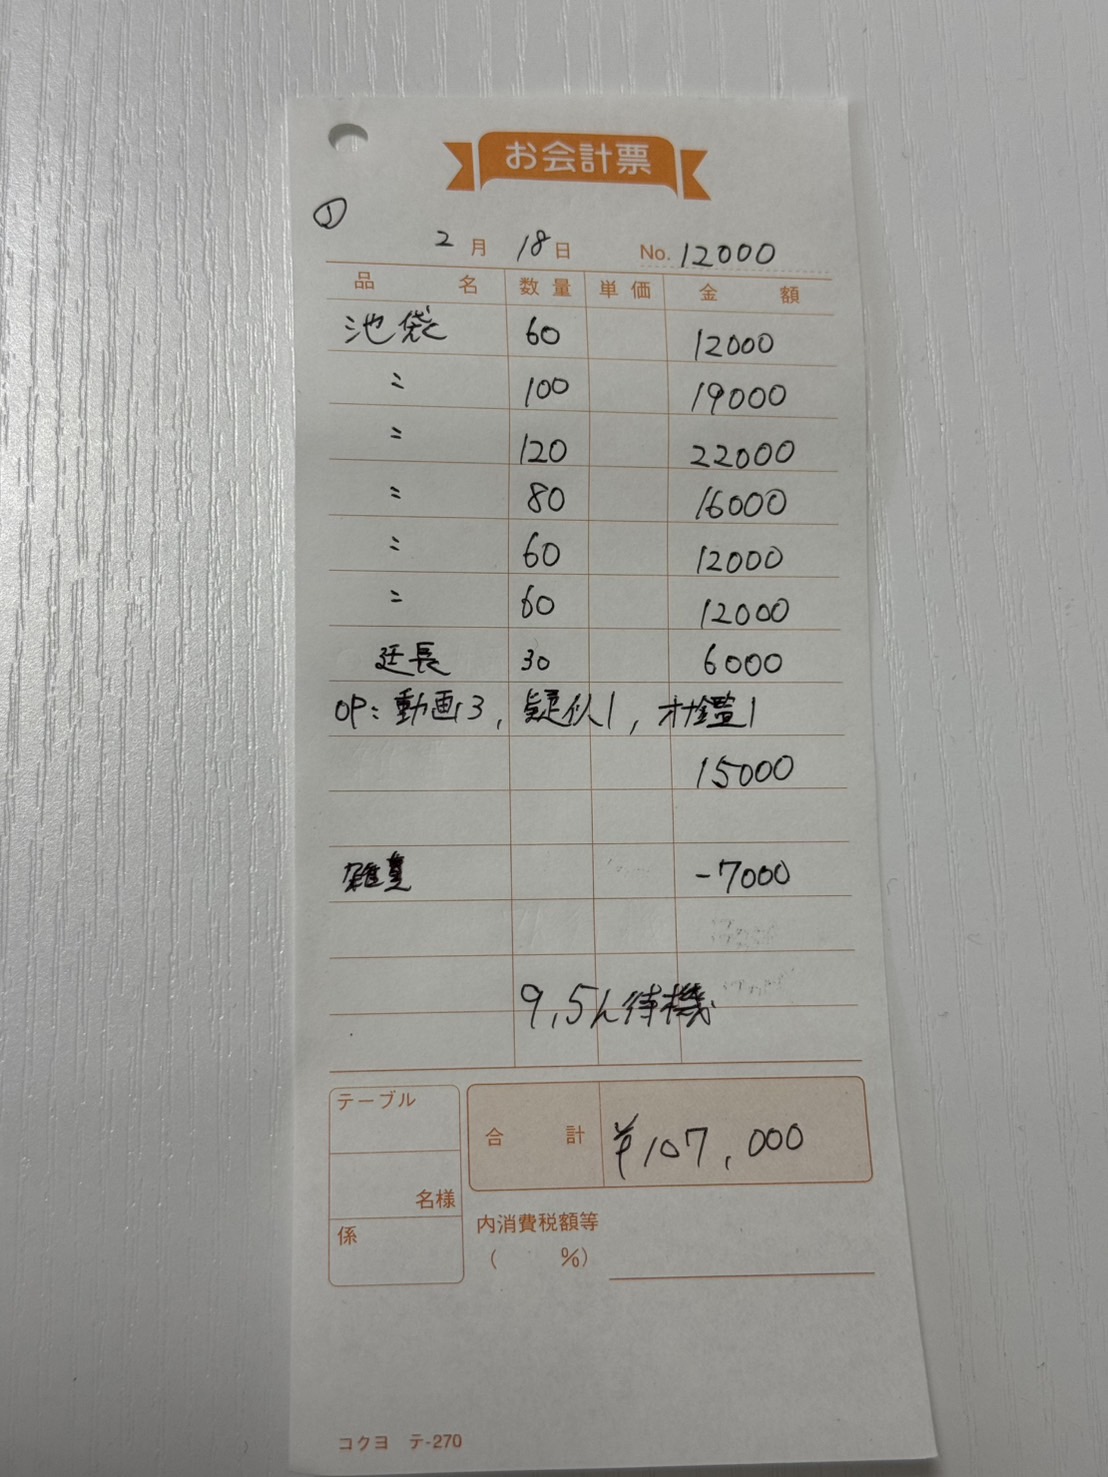 お会計票
①
2月 18日 No. 12000
品名 数量 単価 金額
池袋 60 12000
〃 100 19000
〃 120 22000
〃 80 16000
〃 60 12000
〃 60 12000
延長 30 6000
OP:動画3,疑似1,オナ鑑1
15000
雑費 -7000
9,5h待機
テーブル
合計 ¥107,000
名様
係
内消費税額等
( %)
コクヨ テ-270